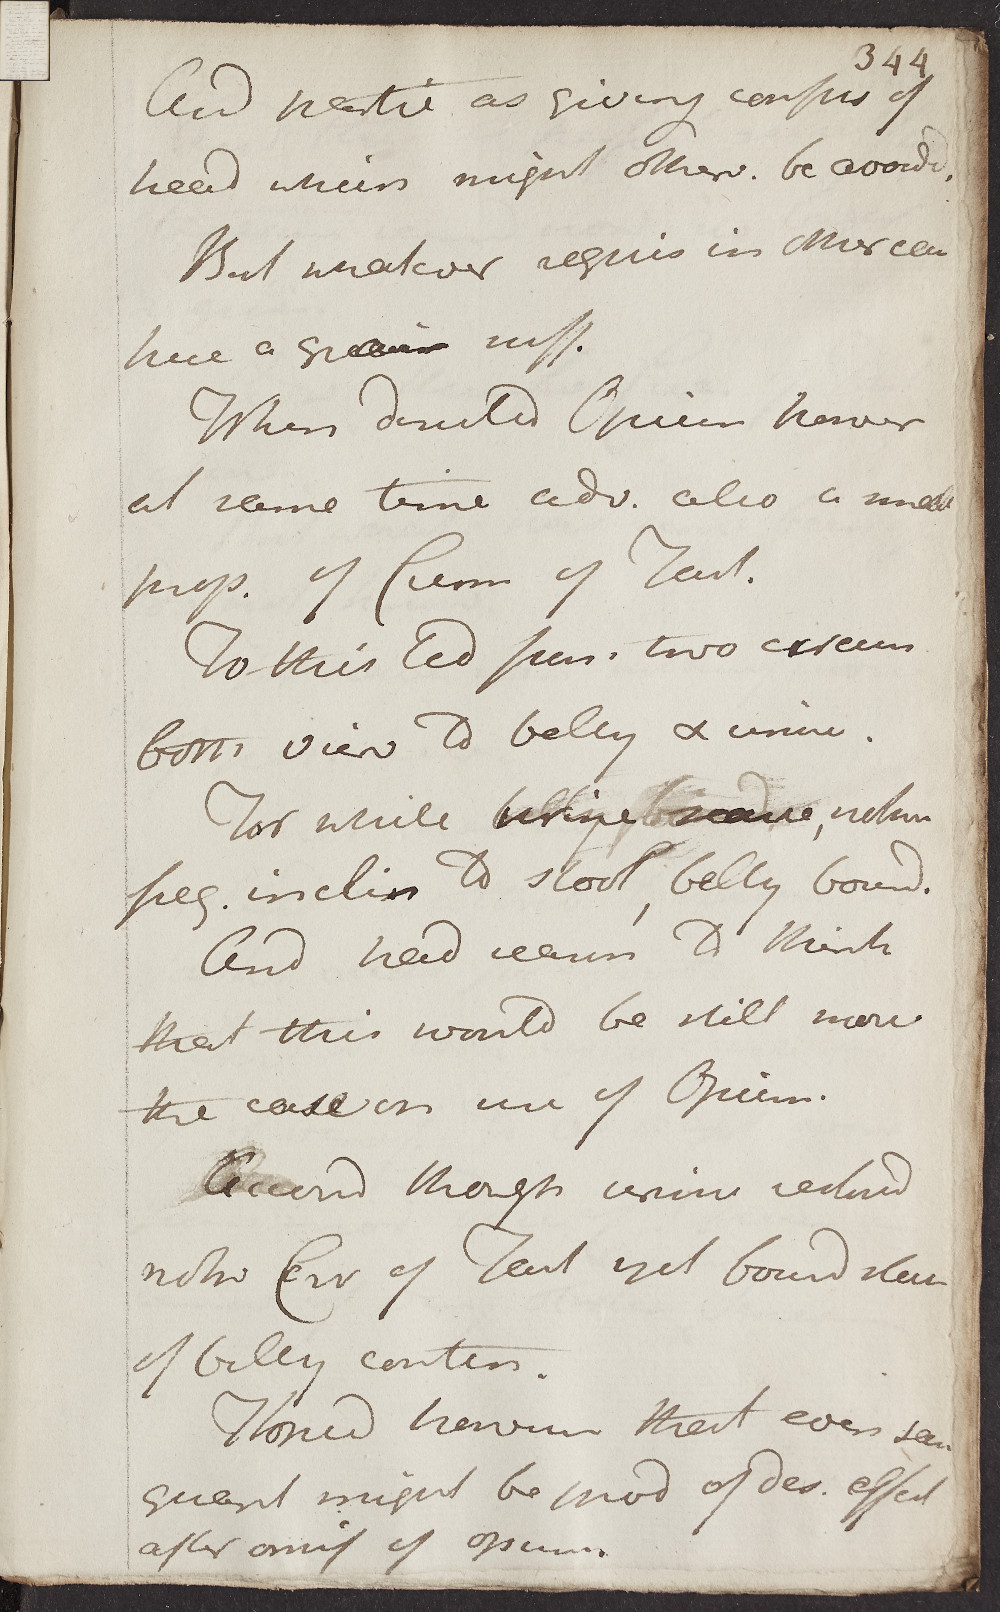 344
And partic as giving confus of
head which might otherw. be avoid.
But whatever requis in other cau
here a grain suff.
When directed Opium however
at same time adv. also a small
prop. of Crem of Tart.
To this led from two circum
both view to belly & urine.
For while urine, redun
freq. inclin to stool, belly bound.
And had reason to think
that this would be still more
the case on use of Opium.
Accord though urine reduced
under Crem of Tart yet bound state
of belly contin.
Hoped however that even
quant might be prod of des. effect
after omis of opium.